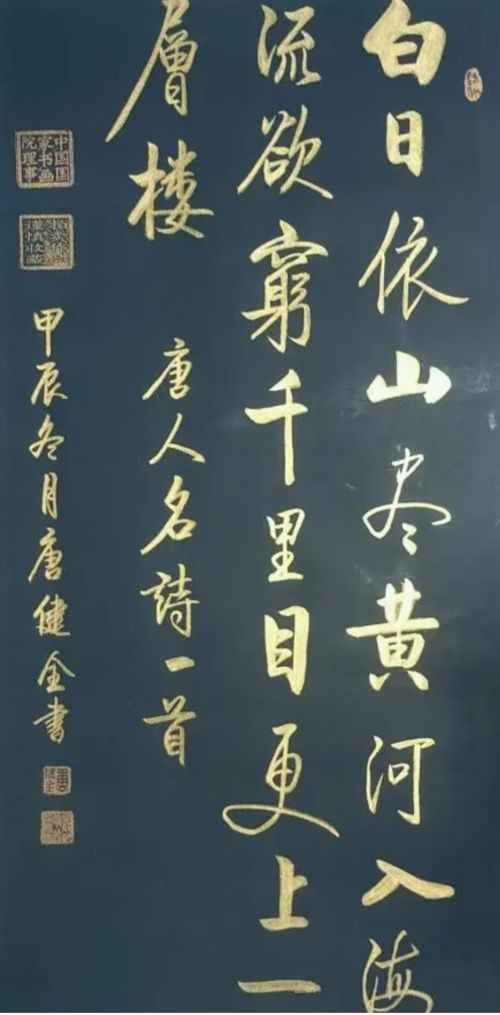 白日依山尽黄河入海
流欲窮千里目更上一
層楼
唐人名詩一首
甲辰冬月唐健全书
中国国
家书画
院理事